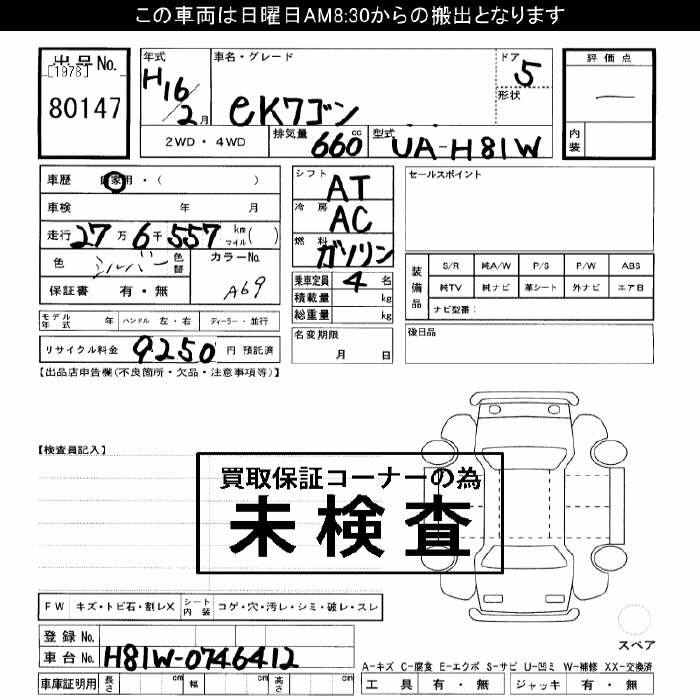 この車両は日曜日AM8:30からの搬出となります
出品No. 年式 車名・グレード ドア 評価点
[1978] H16/2月 eKワゴン 5 —
80147 形状
2WD・4WD 排気量 660cc 型式 UA-H81W 内装
車歴 自家用・( ) シフト AT セールスポイント
車検 年 月 冷房 AC
走行 27万6千557 km マイル( ) 燃料 ガソリン
色 シルバー 色替 カラーNo. A69
装備品 S/R 純A/W P/S P/W ABS
保証書 有・無 乗車定員 4名 純TV 純ナビ 革シート 外ナビ エアB
積載量 kg ナビ型番:
モデル年式 年 ハンドル 左・右 ディーラー・並行 総重量 kg
リサイクル料金 9250 円 預託済 名変期限 月 日 後日品
【出品店申告欄(不良箇所・欠品・注意事項等)】
【検査員記入】
買取保証コーナーの為
未検査
FW キズ・トビ石・割レX シート内装 コゲ・穴・汚レ・シミ・破レ・スレ
登録No. スペア
車台No. H81W-0746412
A-キズ C-腐食 E-エクボ S-サビ U-凹ミ W-補修 XX-交換済
車庫証明用 長さ cm 幅 cm 高さ cm 工具 有・無 ジャッキ 有・無